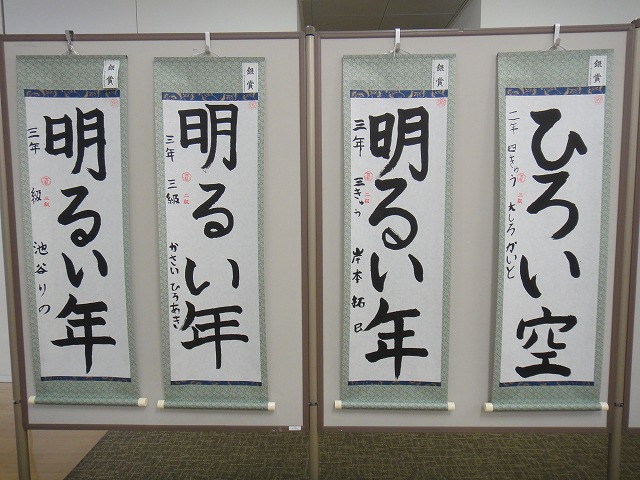 銀賞
明るい年
三年 級 池谷りの
銀賞
明るい年
三年 三級 かさい ひろあき
銀賞
明るい年
三年 三きゅう 岸本 拓巳
銀賞
ひろい空
二年 四きゅう 大しろ かいと